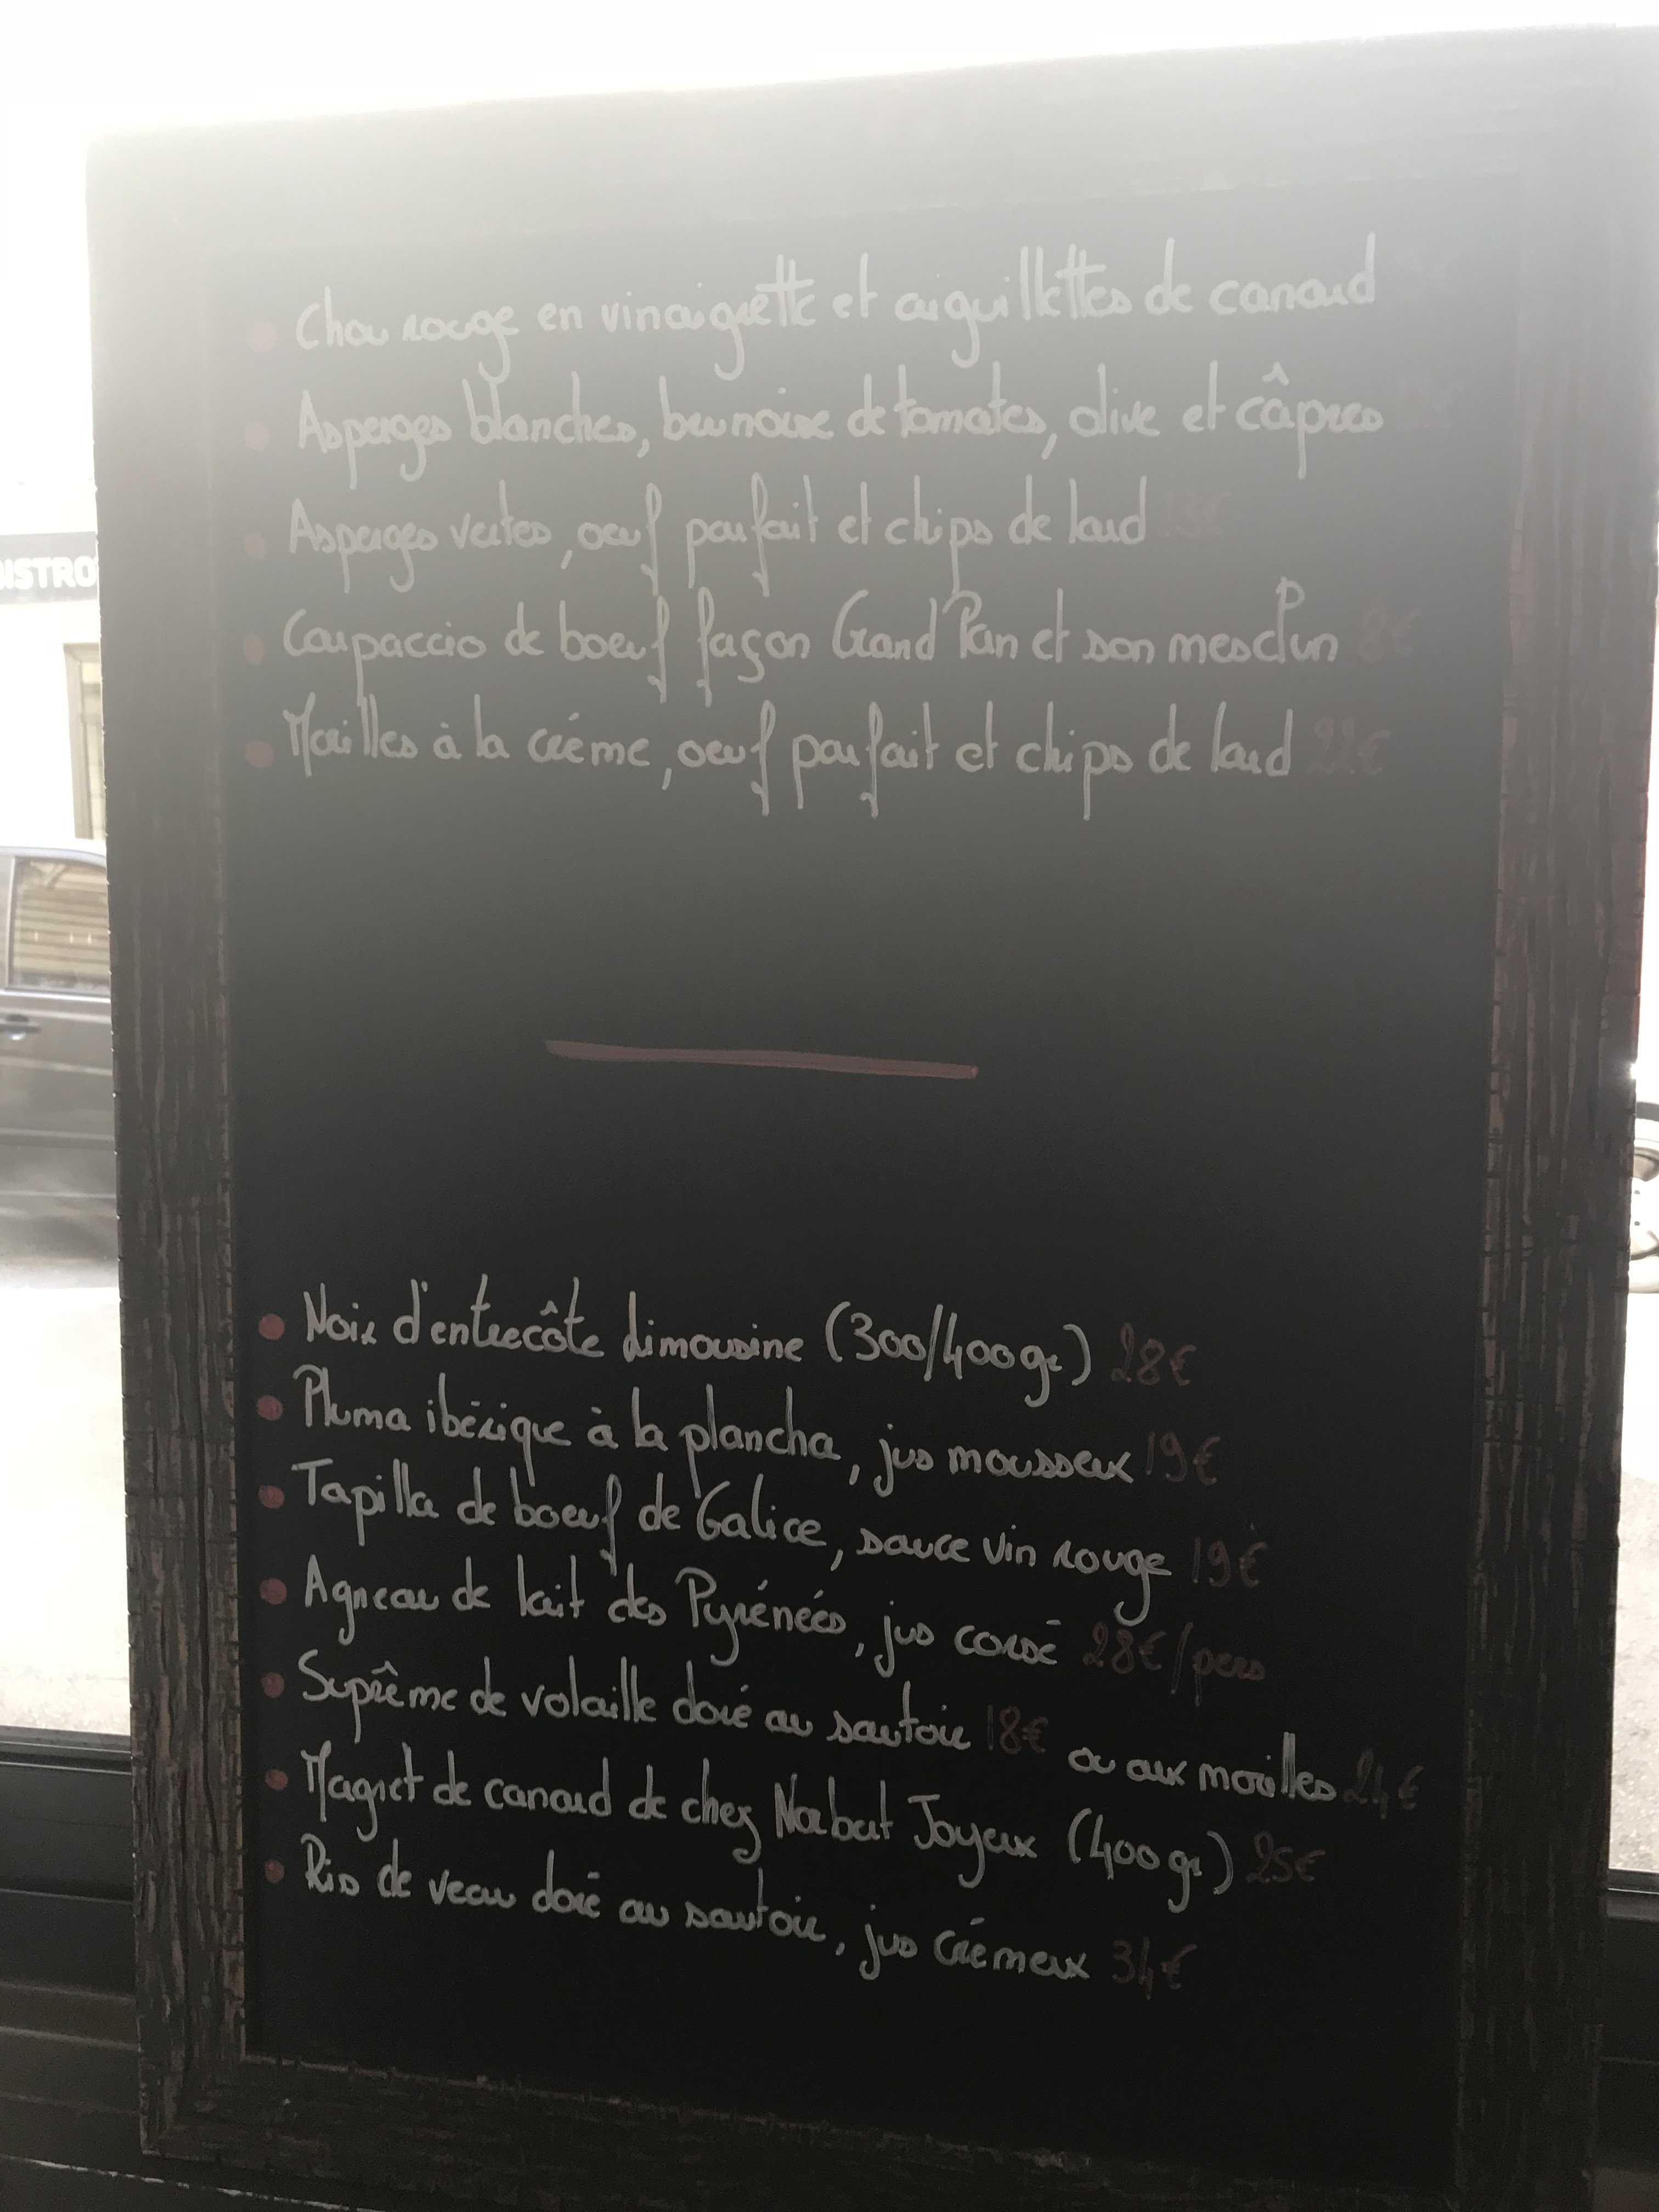 Chou rouge en vinaigrette et aiguillettes de canard
Asperges blanches, brunoise de tomates, olive et câpres
Asperges vertes, oeuf parfait et chips de lard 13€
BISTRO
Carpaccio de boeuf façon Grand Pan et son mesclun 8€
Morilles à la crème, oeuf parfait et chips de lard 22€
Noix d'entrecôte Limousine (300/400gr) 28€
Pluma ibérique à la plancha, jus mousseux 19€
Tapilla de boeuf de Galice, sauce vin rouge 19€
Agneau de lait des Pyrénées, jus corsé 28€/pers
Suprême de volaille doré au sautoir 18€ ou aux morilles 24€
Magret de canard de chez Nabat Joyeux (400gr) 25€
Ris de veau doré au sautoir, jus crémeux 34€